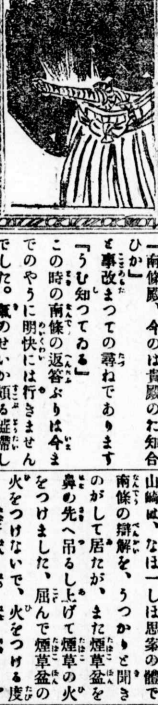 『南條殿、今のは貴殿のお知合
ひか』
と事改まつての尋ねであります
『うむ知つてゐる』
この時の南條の返答ぶりは今ま
でのやうに明快には行きません
でした。氣のせいか頗る澁滯し
山崎は、なほ一しほ思案の體で
南條の辯解を、うつかりと聞き
のがして居たが、また煙草盆を
鼻の先へ吊るし上げて煙草の火
をつけました、屈んで煙草盆の
火をつけないで、火をつける度